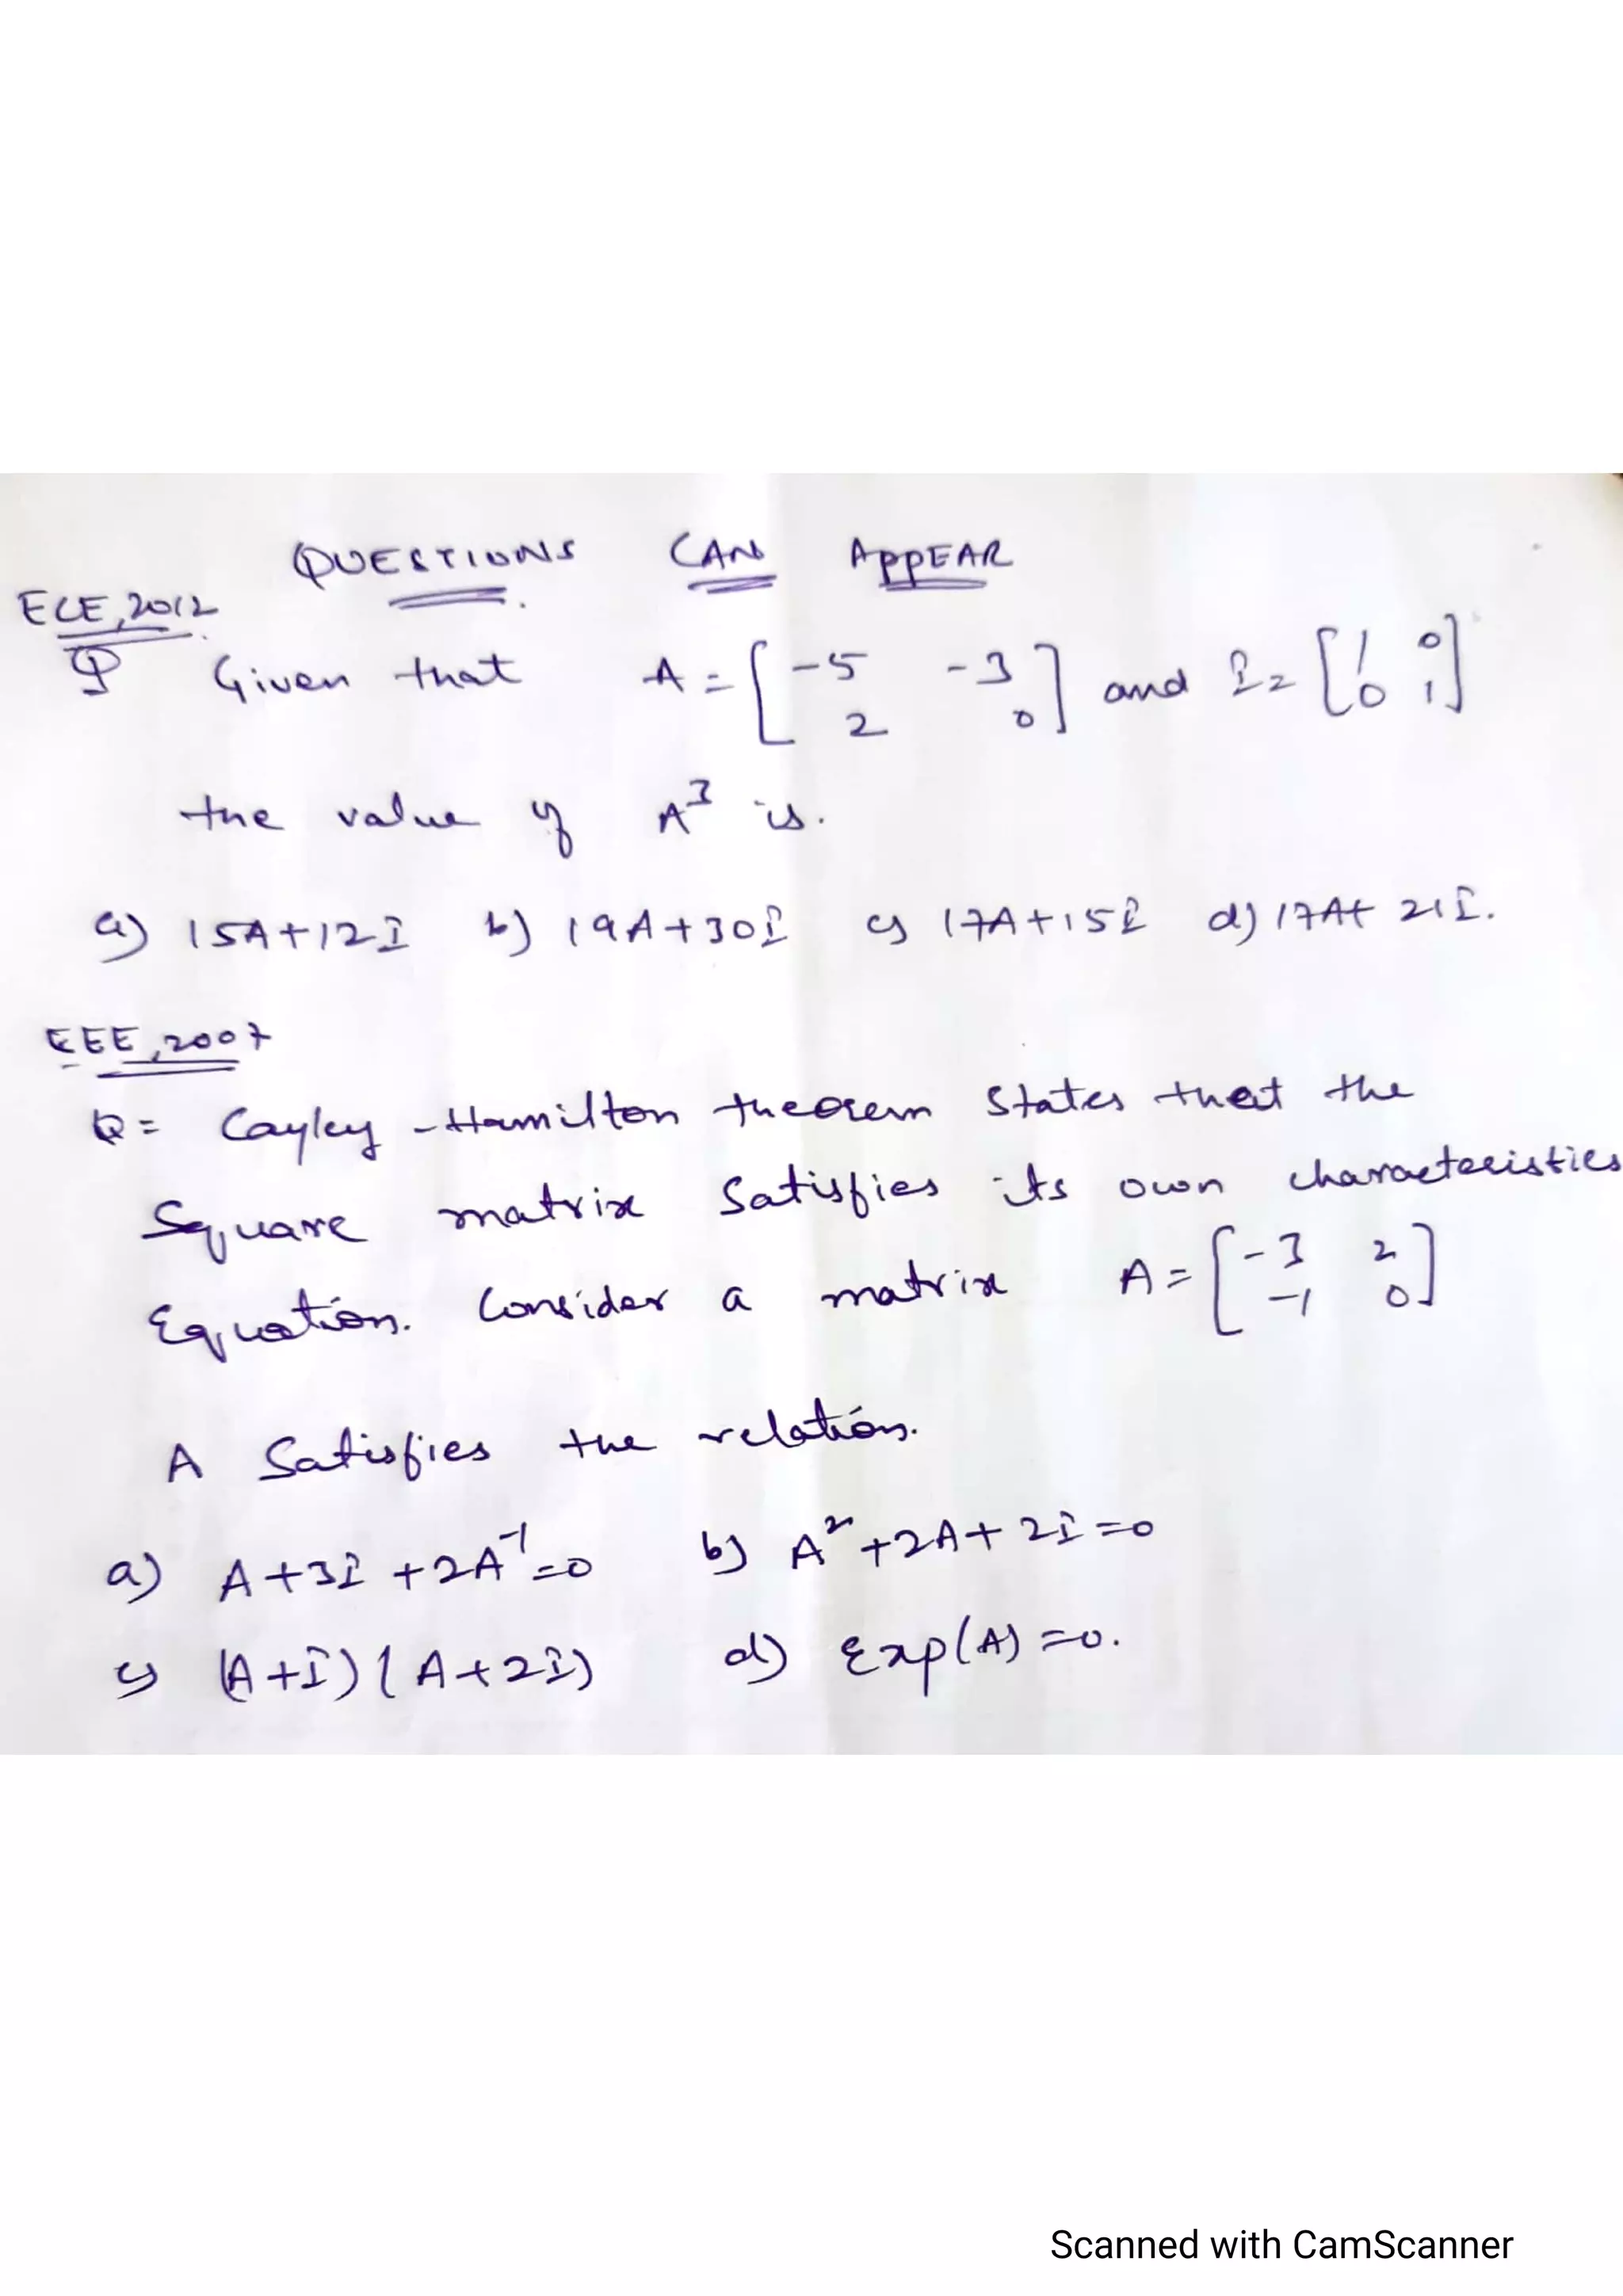 QUESTIONS CAN APPEAR
ECE, 2012
Q Given that A = [ -5 -3 ; 2 0 ] and I = [ 1 0 ; 0 1 ]
the value of A³ is.
a) 15A+12I b) 19A+30I c) 17A+15I d) 17A+ 21I.
EEE, 2007
Q= Cayley-Hamilton theorem states that the
Square matrix satisfies its own characteristics
Equation. Consider a matrix A = [ -3 2 ; -1 0 ]
A Satisfies the relation.
a) A+3I+2A⁻¹=0 b) A²+2A+2I=0
c) (A+I)(A+2I) d) Exp(A)=0.
Scanned with CamScanner